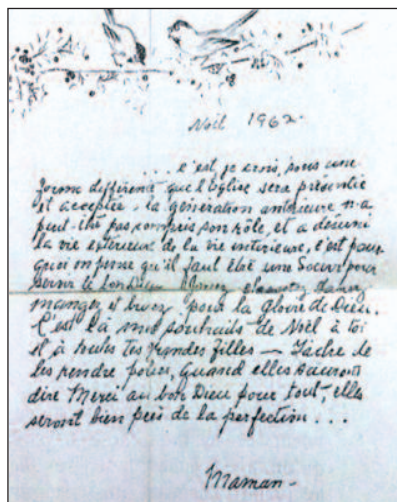 Noël 1962.
... c'est, je crois, sous une
forme différente que l'Eglise sera présentée
et acceptée. la génération antérieure n'a
peut-être pas compris son rôle, et a désuni
la vie extérieure de la vie intérieure, c'est pour
quoi on pense qu'il faut être une Soeur pour
servir le bon Dieu
mangez et buvez pour la gloire de Dieu.
C'est là mes souhaits de Noël à toi
et à toutes tes grandes filles — Tâche de
les rendre quand elles sauront
dire Merci au bon Dieu pour tout, elles
seront bien près de la perfection...
Maman -